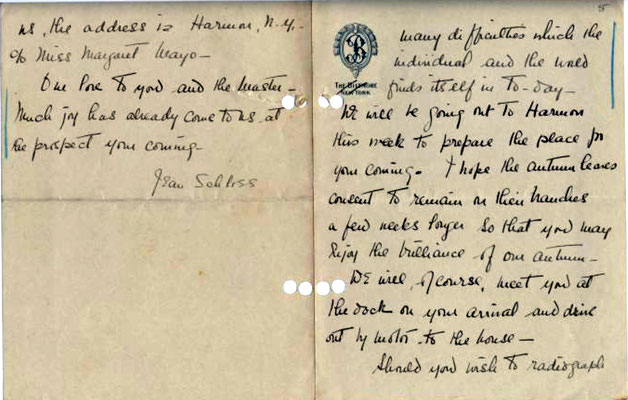 5
THE BILTMORE
NEW YORK
many difficulties which the
individual and the world
finds itself in to-day-
We will be going out to Harmon
this week to prepare the place for
your coming. I hope the autumn leaves
consent to remain on their branches
a few weeks longer so that you may
enjoy the brilliance of our autumn-
We will, of course, meet you at
the dock on your arrival and drive
out by motor to the house-
Should you wish to radiograph
us, the address is Harmon, N.Y.
c/o Miss Margaret Mayo-
Our love to you and the Master-
Much joy has already come to us at
the prospect your coming-
Jean Schloss